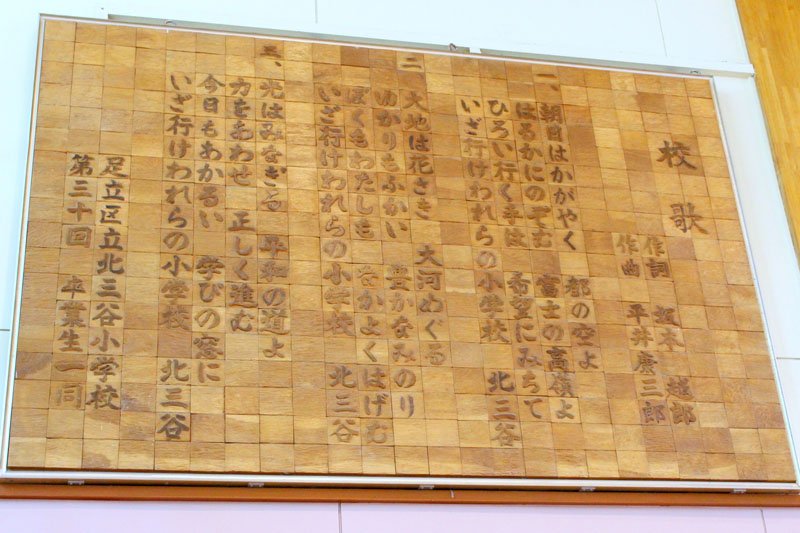 校歌
作詞 坂本越郎
作曲 平井康三郎
一、朝日はかがやく 都の空よ
はるかにのぞむ 富士の高嶺よ
ひろい行く手は 希望にみちて
いざ行けわれらの小学校 北三谷
二 大地は花さき 大河めぐる
ゆかりもふかい 豊かなみのり
ぼくもわたしも なかよくはげむ
いざ行けわれらの小学校 北三谷
三、光はみなぎる 平和の道よ
力をあわせ 正しく進む
今日もあかるい 学びの窓に
いざ行けわれらの小学校 北三谷
足立区立北三谷小学校
第三十回 卒業生一同